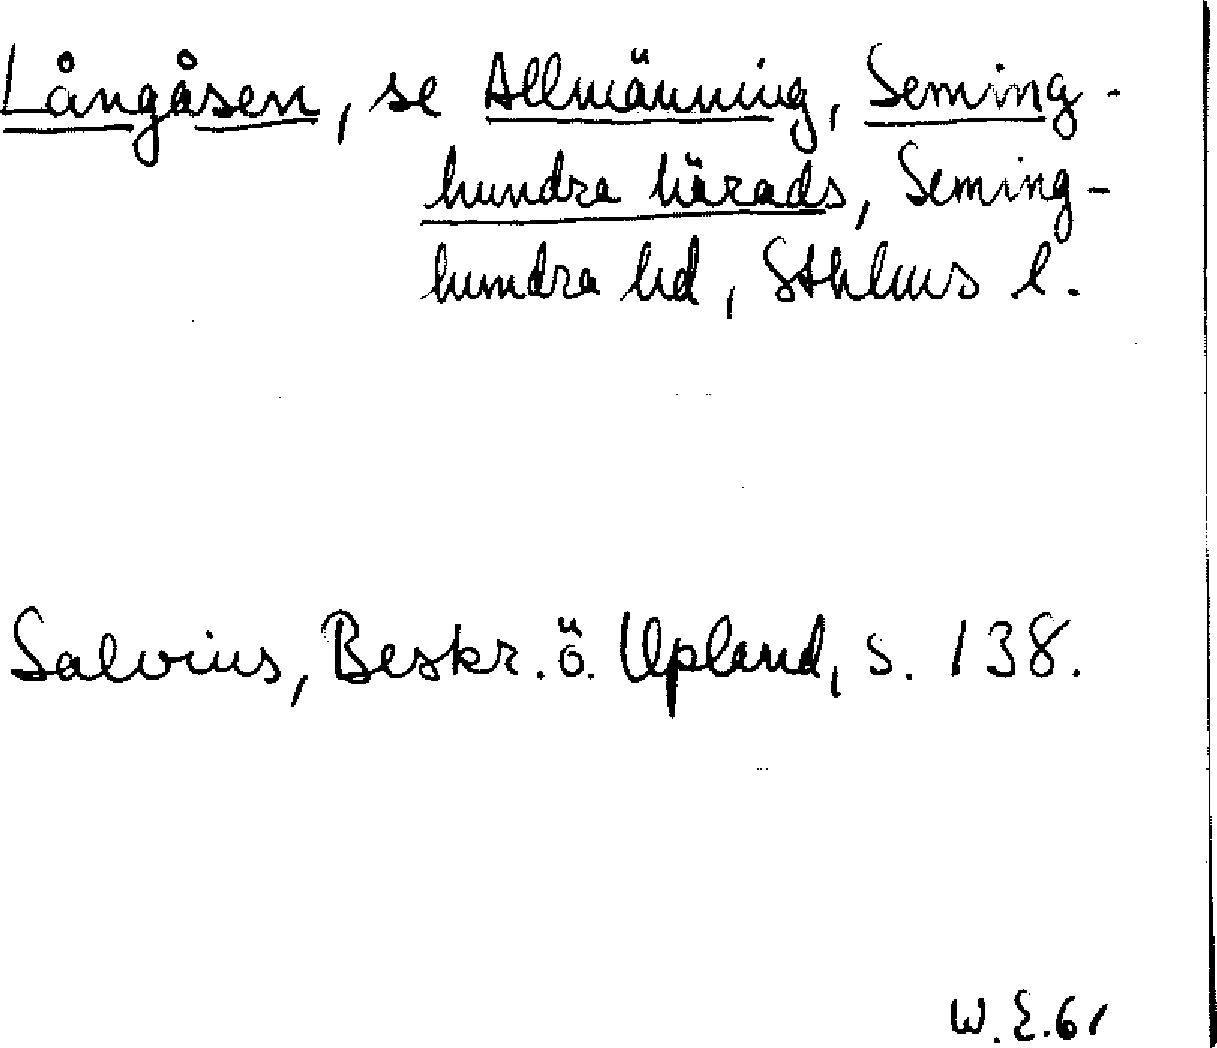 Långåsen, se Allmänning, Seming-
hundra härads, Seming-
hundra hd, Sthlms l.
Salvius, Beskr. ö. Upland, s. 138.
W. E. 61